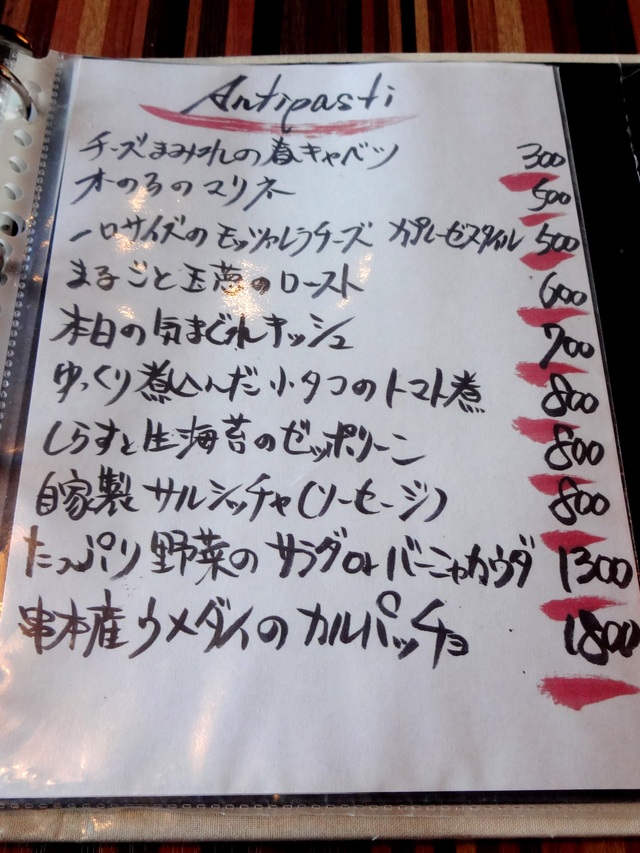 Antipasti
チーズまみれの春キャベツ 300
オのろのマリネ 500
一口サイズのモッツァレラチーズ カプレーゼスタイル 500
まるごと玉葱のロースト 600
本日の気まぐれキッシュ 700
ゆっくり煮込んだ小タコのトマト煮 800
しらすと生海苔のゼッポリーン 800
自家製サルシッチャ(ソーセージ) 800
たっぷり野菜のサラダorバーニャカウダ 1300
串本産ウメダイのカルパッチョ 1800